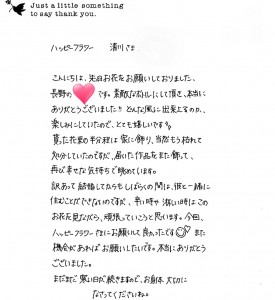 Just a little something
to say thank you.
ハッピーフラワー 清川さま
こんにちは、先日お花をお願いしておりました、
長野の です。素敵な にして頂き、本当に
ありがとうございました!! どんな風に出来上るのか、
楽しみにしていたので、とても嬉しいです!!
貰った花束の半分程は家に飾り、当然もう枯れて
処分していたのですが、届いた作品をまた飾って、
再び幸せな気持ちで眺めています。
訳あって結婚してからもしばらくの間は、彼と一緒に
住むことができないのですが、辛い時や淋しい時はこの
お花を見ながら、頑張っていこうと思います。今回、
ハッピーフラワーさまにお願いして良かったです また
機会があればお願いしたいです。本当にありがとう
ございました。
まだまだ寒い日が続きますので、お身体 大切に
なさってくださいね。